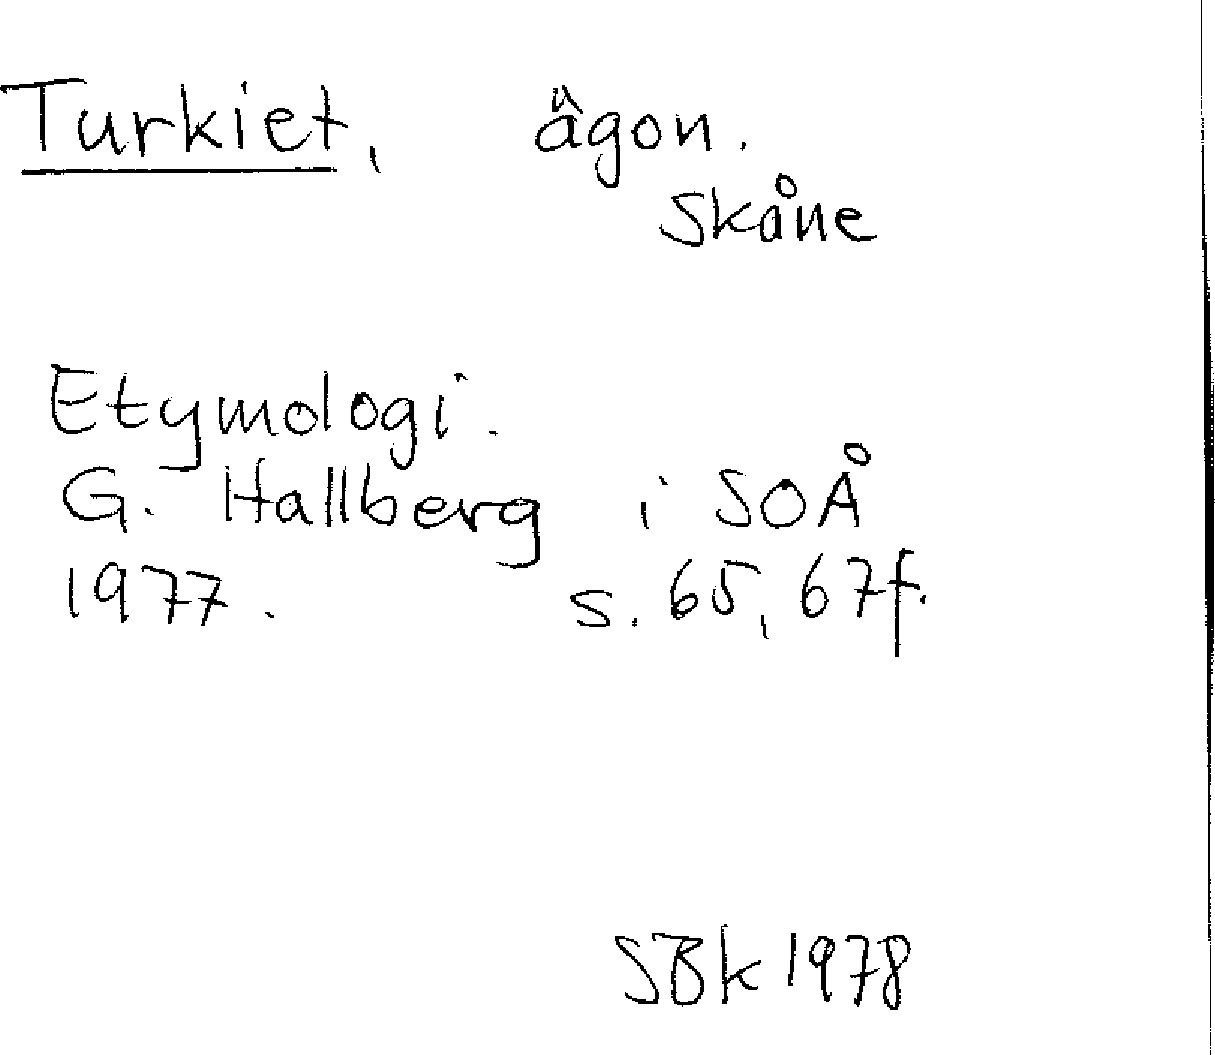 Turkiet, ägon.
Skåne
Etymologi.
G. Hallberg i SOÅ
1977. s. 65, 67f.
SBk 1978